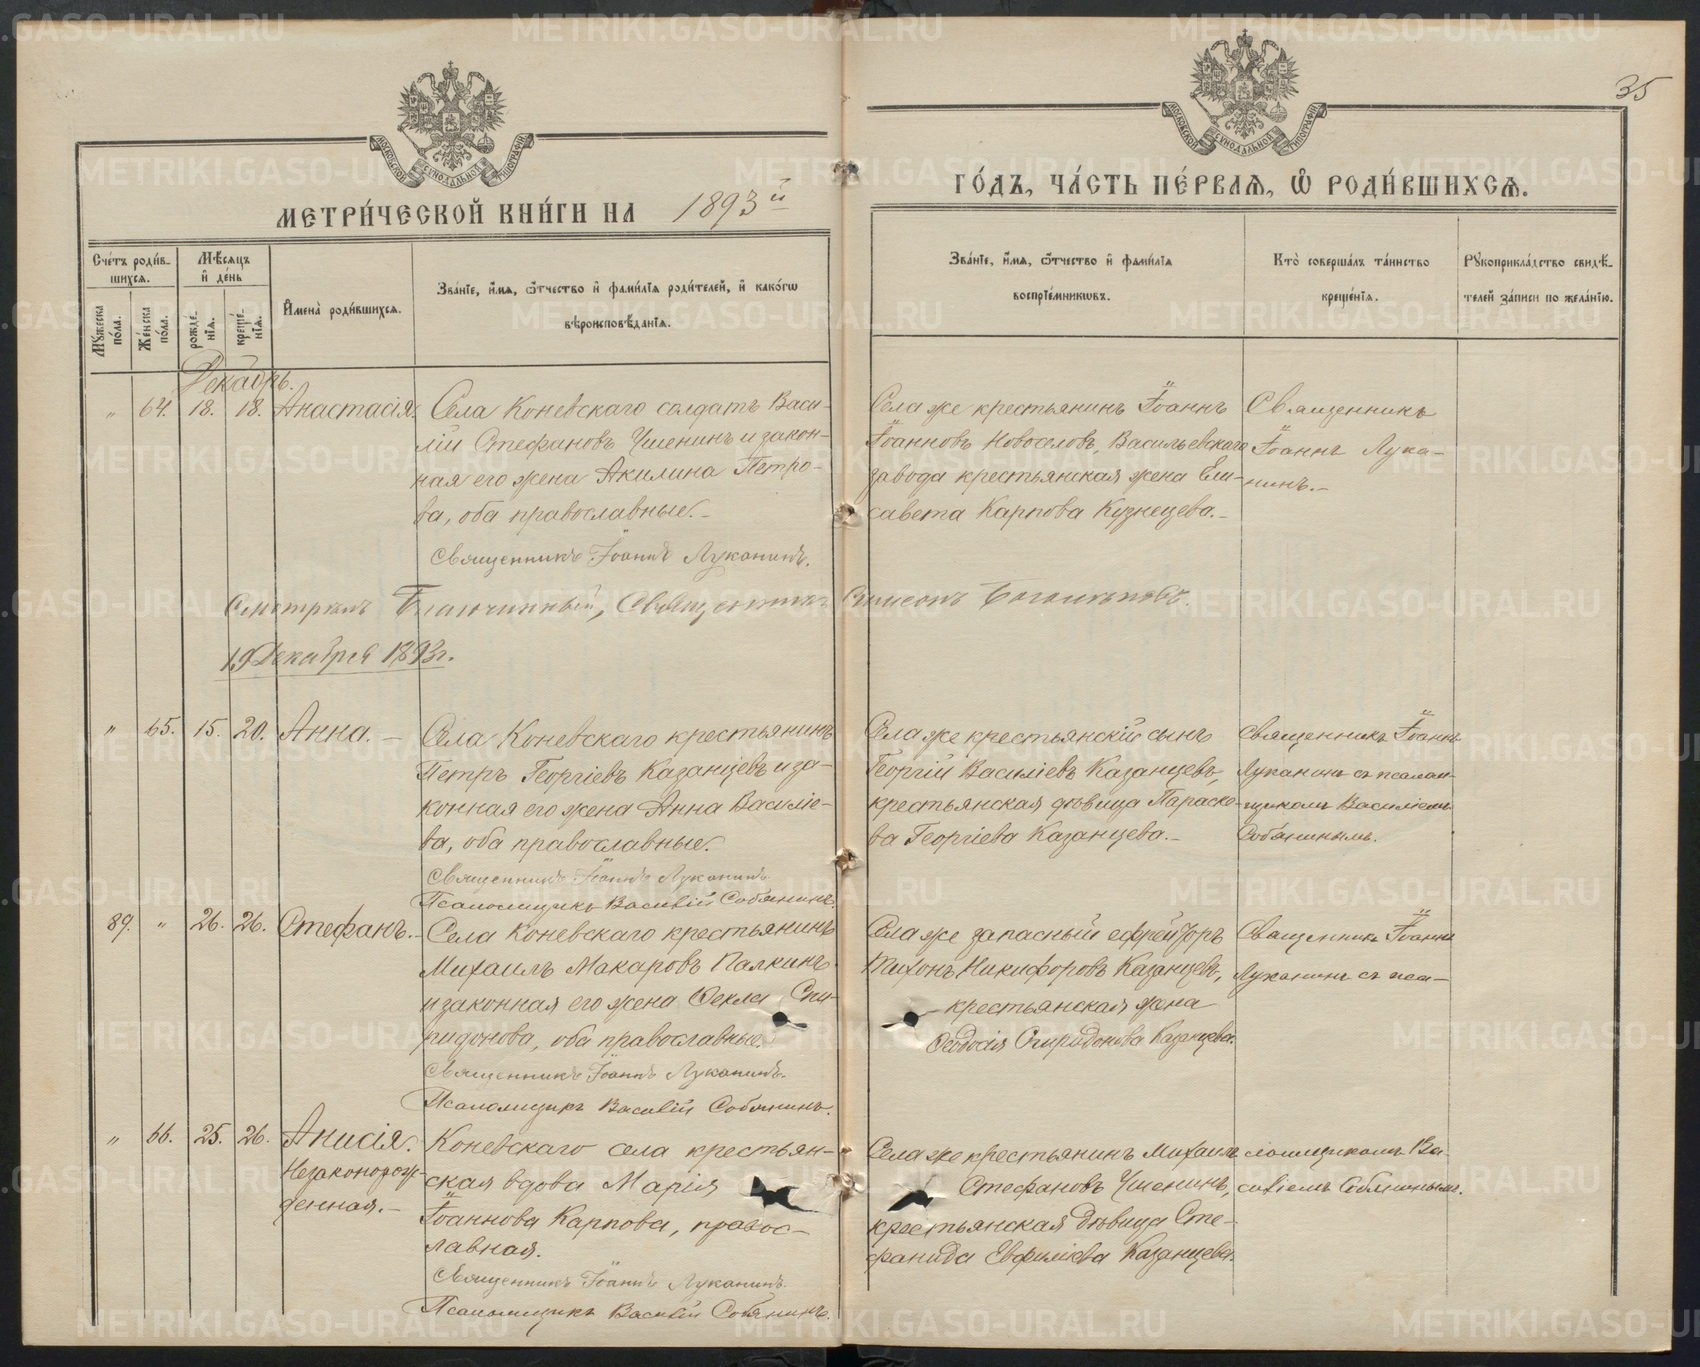 35
МЕТРИ́ЧЕСКОЙ КНИ́ГИ НА 1893й
ГО́ДЪ, ЧА́СТЬ ПЕ́РВАѦ, Ѡ҆ РОДИ́ВШИХСѦ.
Сче́тъ роди́вшихсѧ.
Мѣ́сѧцъ и҆ де́нь
Мꙋ́жеска по́ла.
Же́нска по́ла.
рожде́нїѧ.
креще́нїѧ.
И҆мена̀ роди́вшихсѧ.
Зва́нїе, и҆́мѧ, ѻ҆́тчество и҆ фами́лїѧ роди́телей, и҆ како́гѡ
вѣроисповѣ́данїѧ.
Зва́нїе, и҆́мѧ, ѻ҆́тчество и҆ фами́лїѧ
воспрїе́мникѡвъ.
Кто̀ соверша́лъ та́инство
креще́нїѧ.
Рꙋкоприкла́дство свидѣ́-
телей за́писи по жела́нїю.
Декабрь.
" 64. 18. 18. Анастасія. Села Коневскаго солдатъ Васи-
лій Стефановъ Ушенинъ и закон-
ная его жена Акилина Петро-
ва, оба православные.-
Села же крестьянинъ Іоаннъ
Іоанновъ Новоселовъ, Васильевскаго
завода крестьянская жена Ели-
савета Карпова Кузнецова.-
Священникъ
Іоаннъ Лука-
нинъ.-
Священникъ Іоаннъ Луканинъ.
Смотрѣлъ Благочинный, Священникъ Симеонъ
19 Декабря 1893г.
" 65. 15. 20. Анна.- Села Коневскаго крестьянинъ
Петръ Георгіевъ Казанцевъ и за-
конная его жена Анна Василіе-
ва, оба православные.
Священникъ Іоаннъ Луканинъ.
Псаломщикъ Василій Собянинъ.
Села же крестьянскій сынъ
Георгій Василіевъ Казанцевъ,
крестьянская дѣвица Параске-
ва Георгіева Казанцева.-
Священникъ Іоаннъ
Луканинъ съ псалом-
щикомъ Василіемъ
Собянинымъ.
89. " 26. 26. Стефанъ.- Села Коневскаго крестьянинъ
Михаилъ Макаровъ Палкинъ
и законная его жена Фекла Спи-
ридонова, оба православные.
Священникъ Іоаннъ Луканинъ.
Псаломщикъ Василій Собянинъ.
Села же запасный ефрейторъ
Тихонъ Никифоровъ Казанцевъ,
крестьянская жена
Феодосія Спиридонова Казанцева.
Священникъ Іоаннъ
Луканинъ съ пса-
" 66. 25. 26. Анисія.
Незаконорож-
денная.-
Коневскаго села крестьян-
ская вдова Марія
Іоаннова Карпова, правос-
лавная.
Священникъ Іоаннъ Луканинъ.
Псаломщикъ Василій Собянинъ.
Села же крестьянинъ Михаилъ
Стефановъ Ушенинъ,
крестьянская дѣвица Сте-
фанида Евфиміева Казанцева.
ломщикомъ Ва-
силіемъ Собянинымъ.